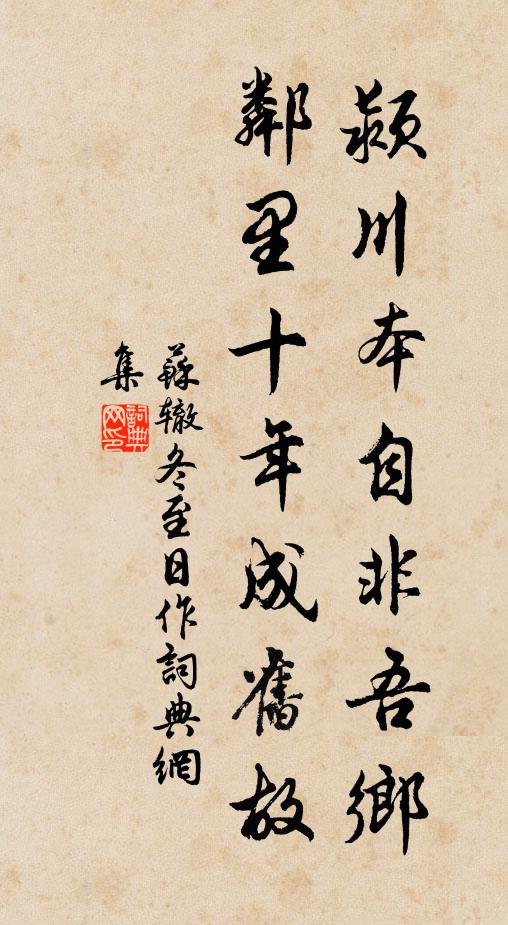 潁川本自非吾鄉
鄰里十年成舊故
蘇轍冬至日作詞典網
集
詞典网印